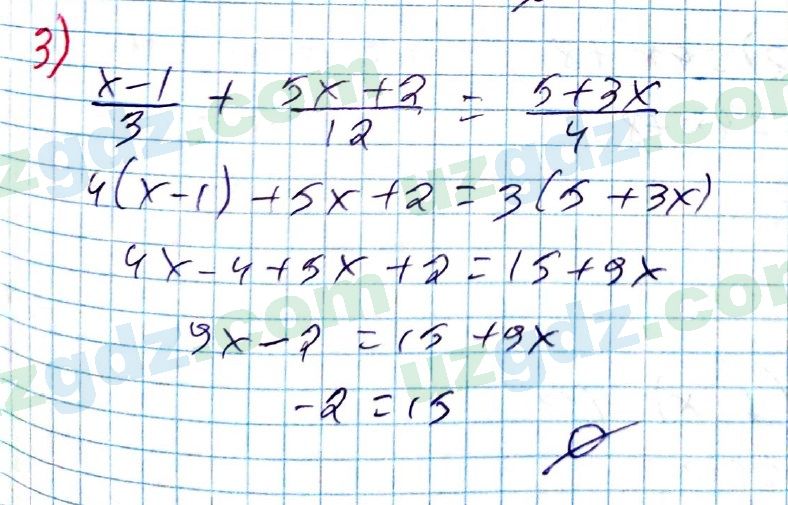 3)
x-1/3 + 5x+2/12 = 5+3x/4
4(x-1)+5x+2=3(5+3x)
4x-4+5x+2=15+9x
9x-2=15+9x
-2=15
∅
uzgdz.com
uzgdz.com
uzgdz.com
uzgdz.com